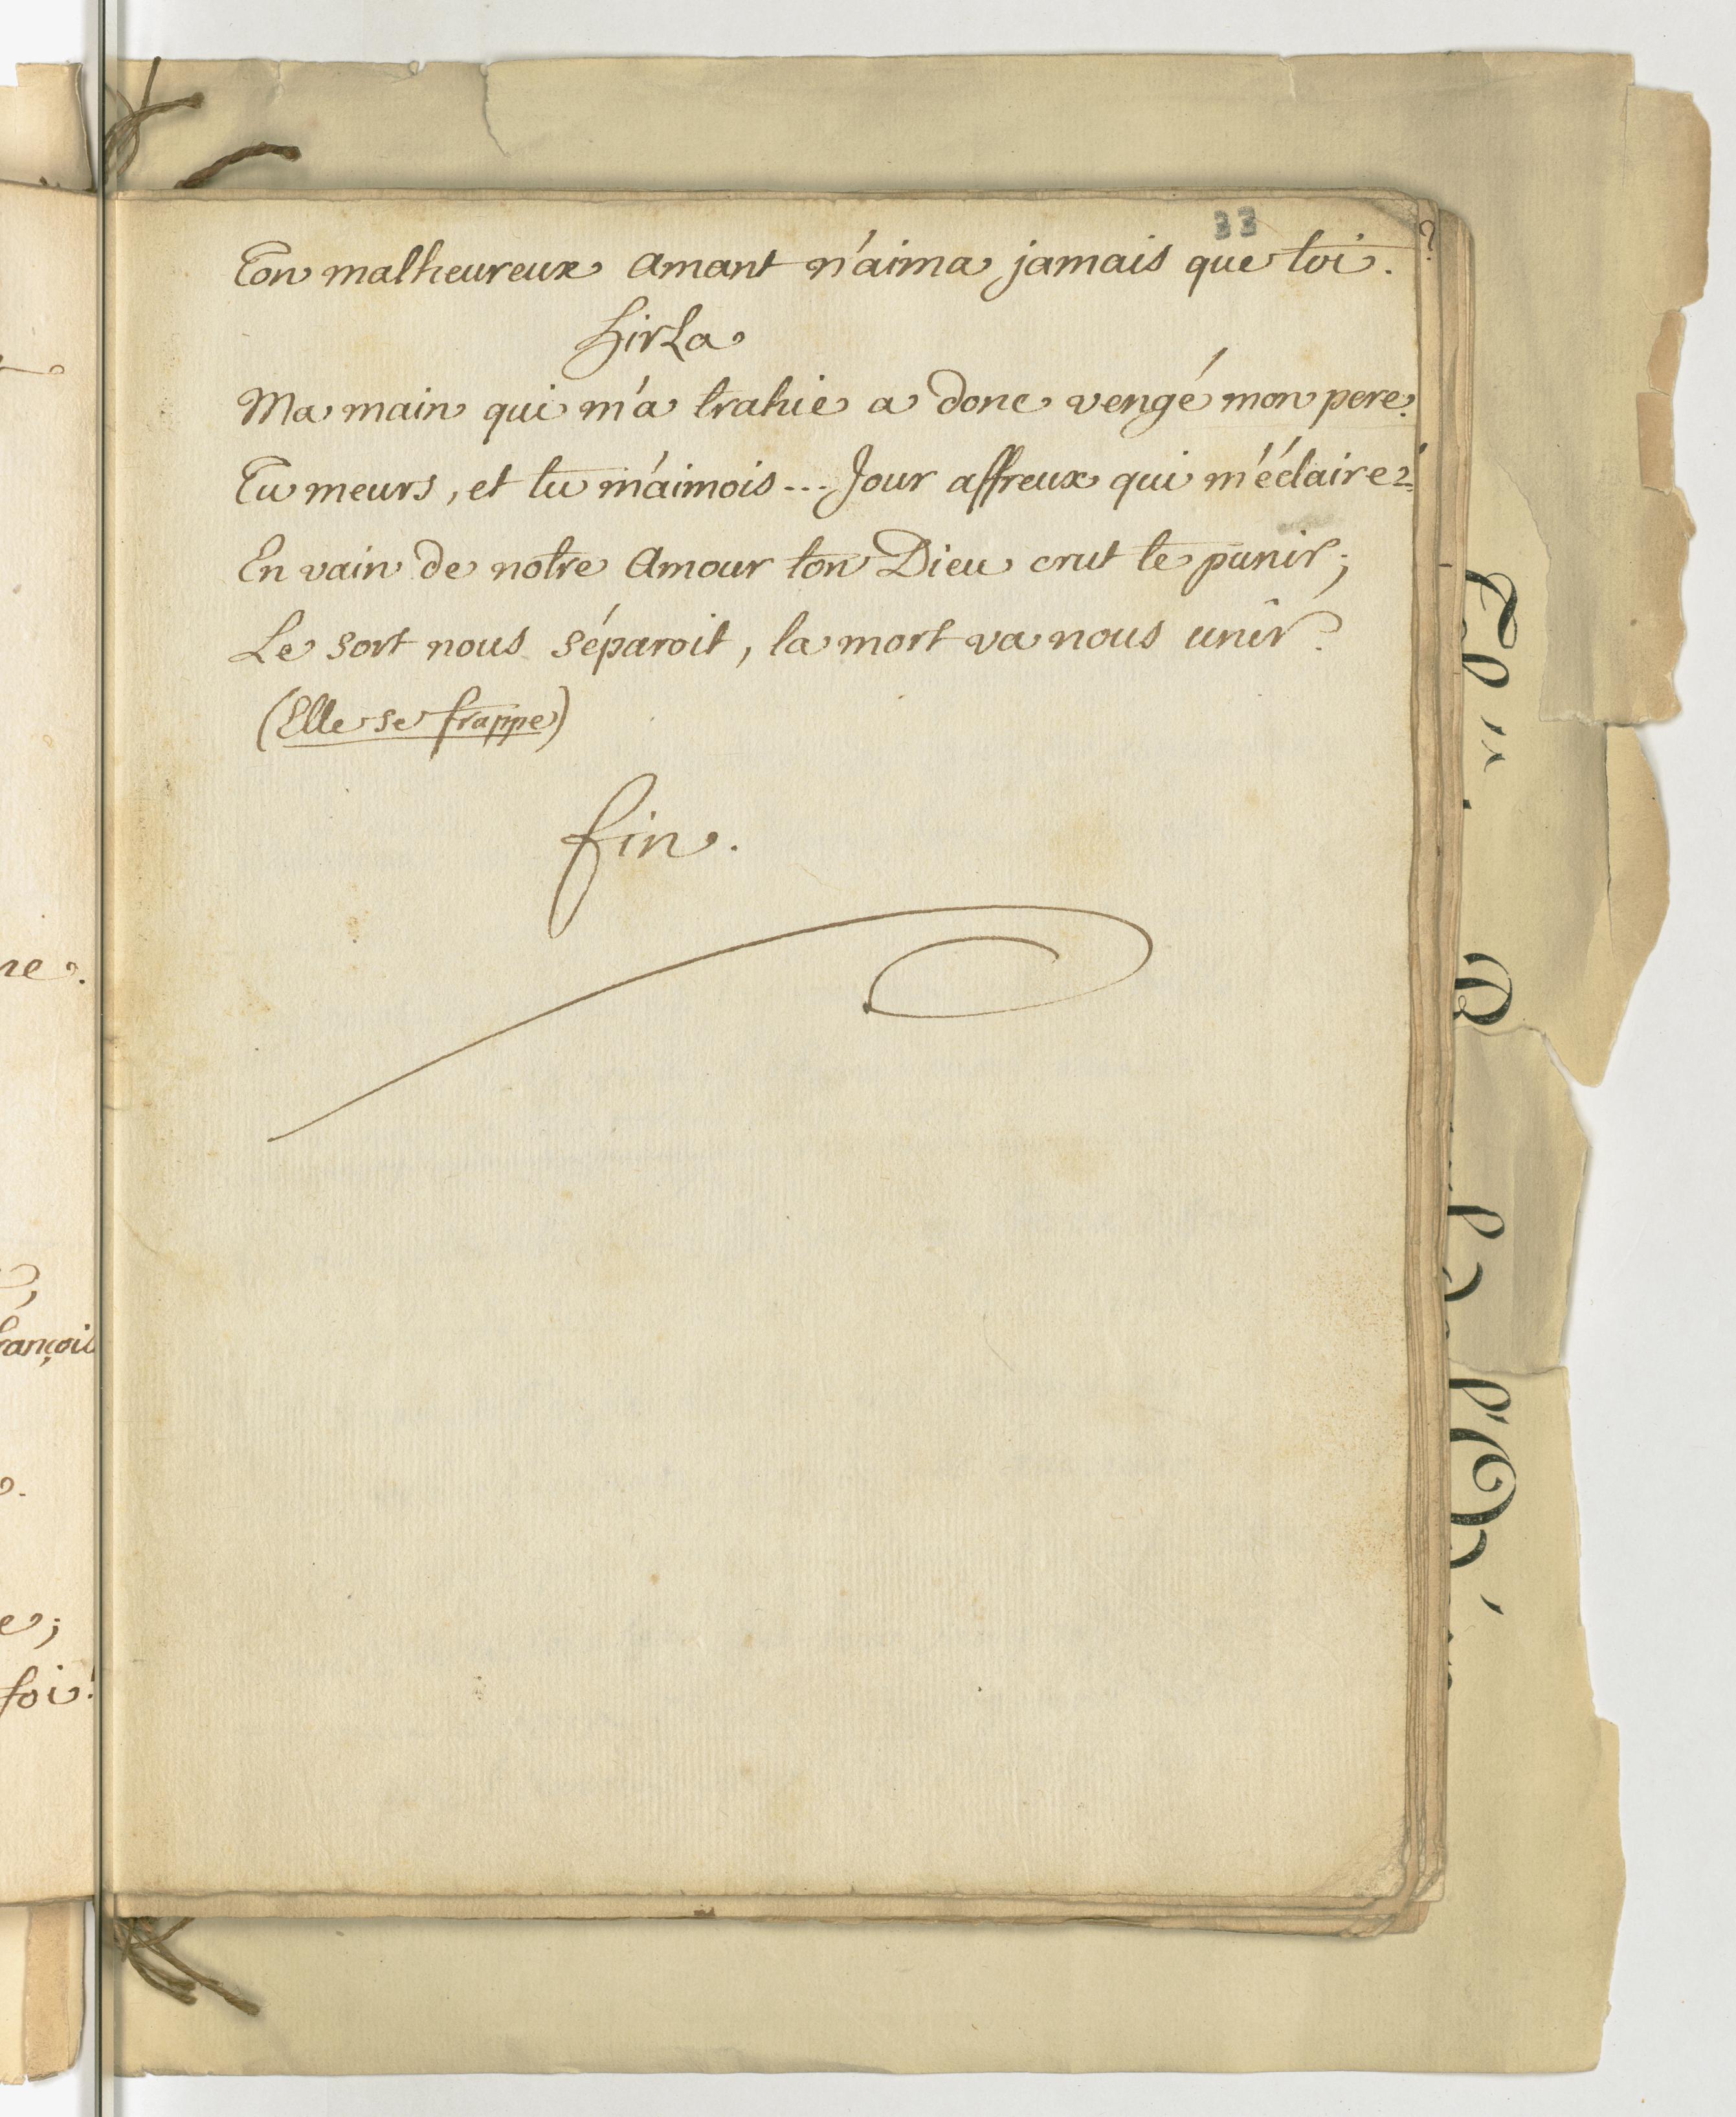 33
Ton malheureux Amant n'aima jamais que toi.
hirza
Ma main qui m'a trahie a donc vengé mon pere.
Tu meurs, et tu m'aimois... Jour affreux qui m'éclaire!
En vain de notre Amour ton Dieu crut te punir;
Le sort nous séparoit, la mort va nous unir.
(Elle se frappe)
fin.
ne.
françois
e;
foi!